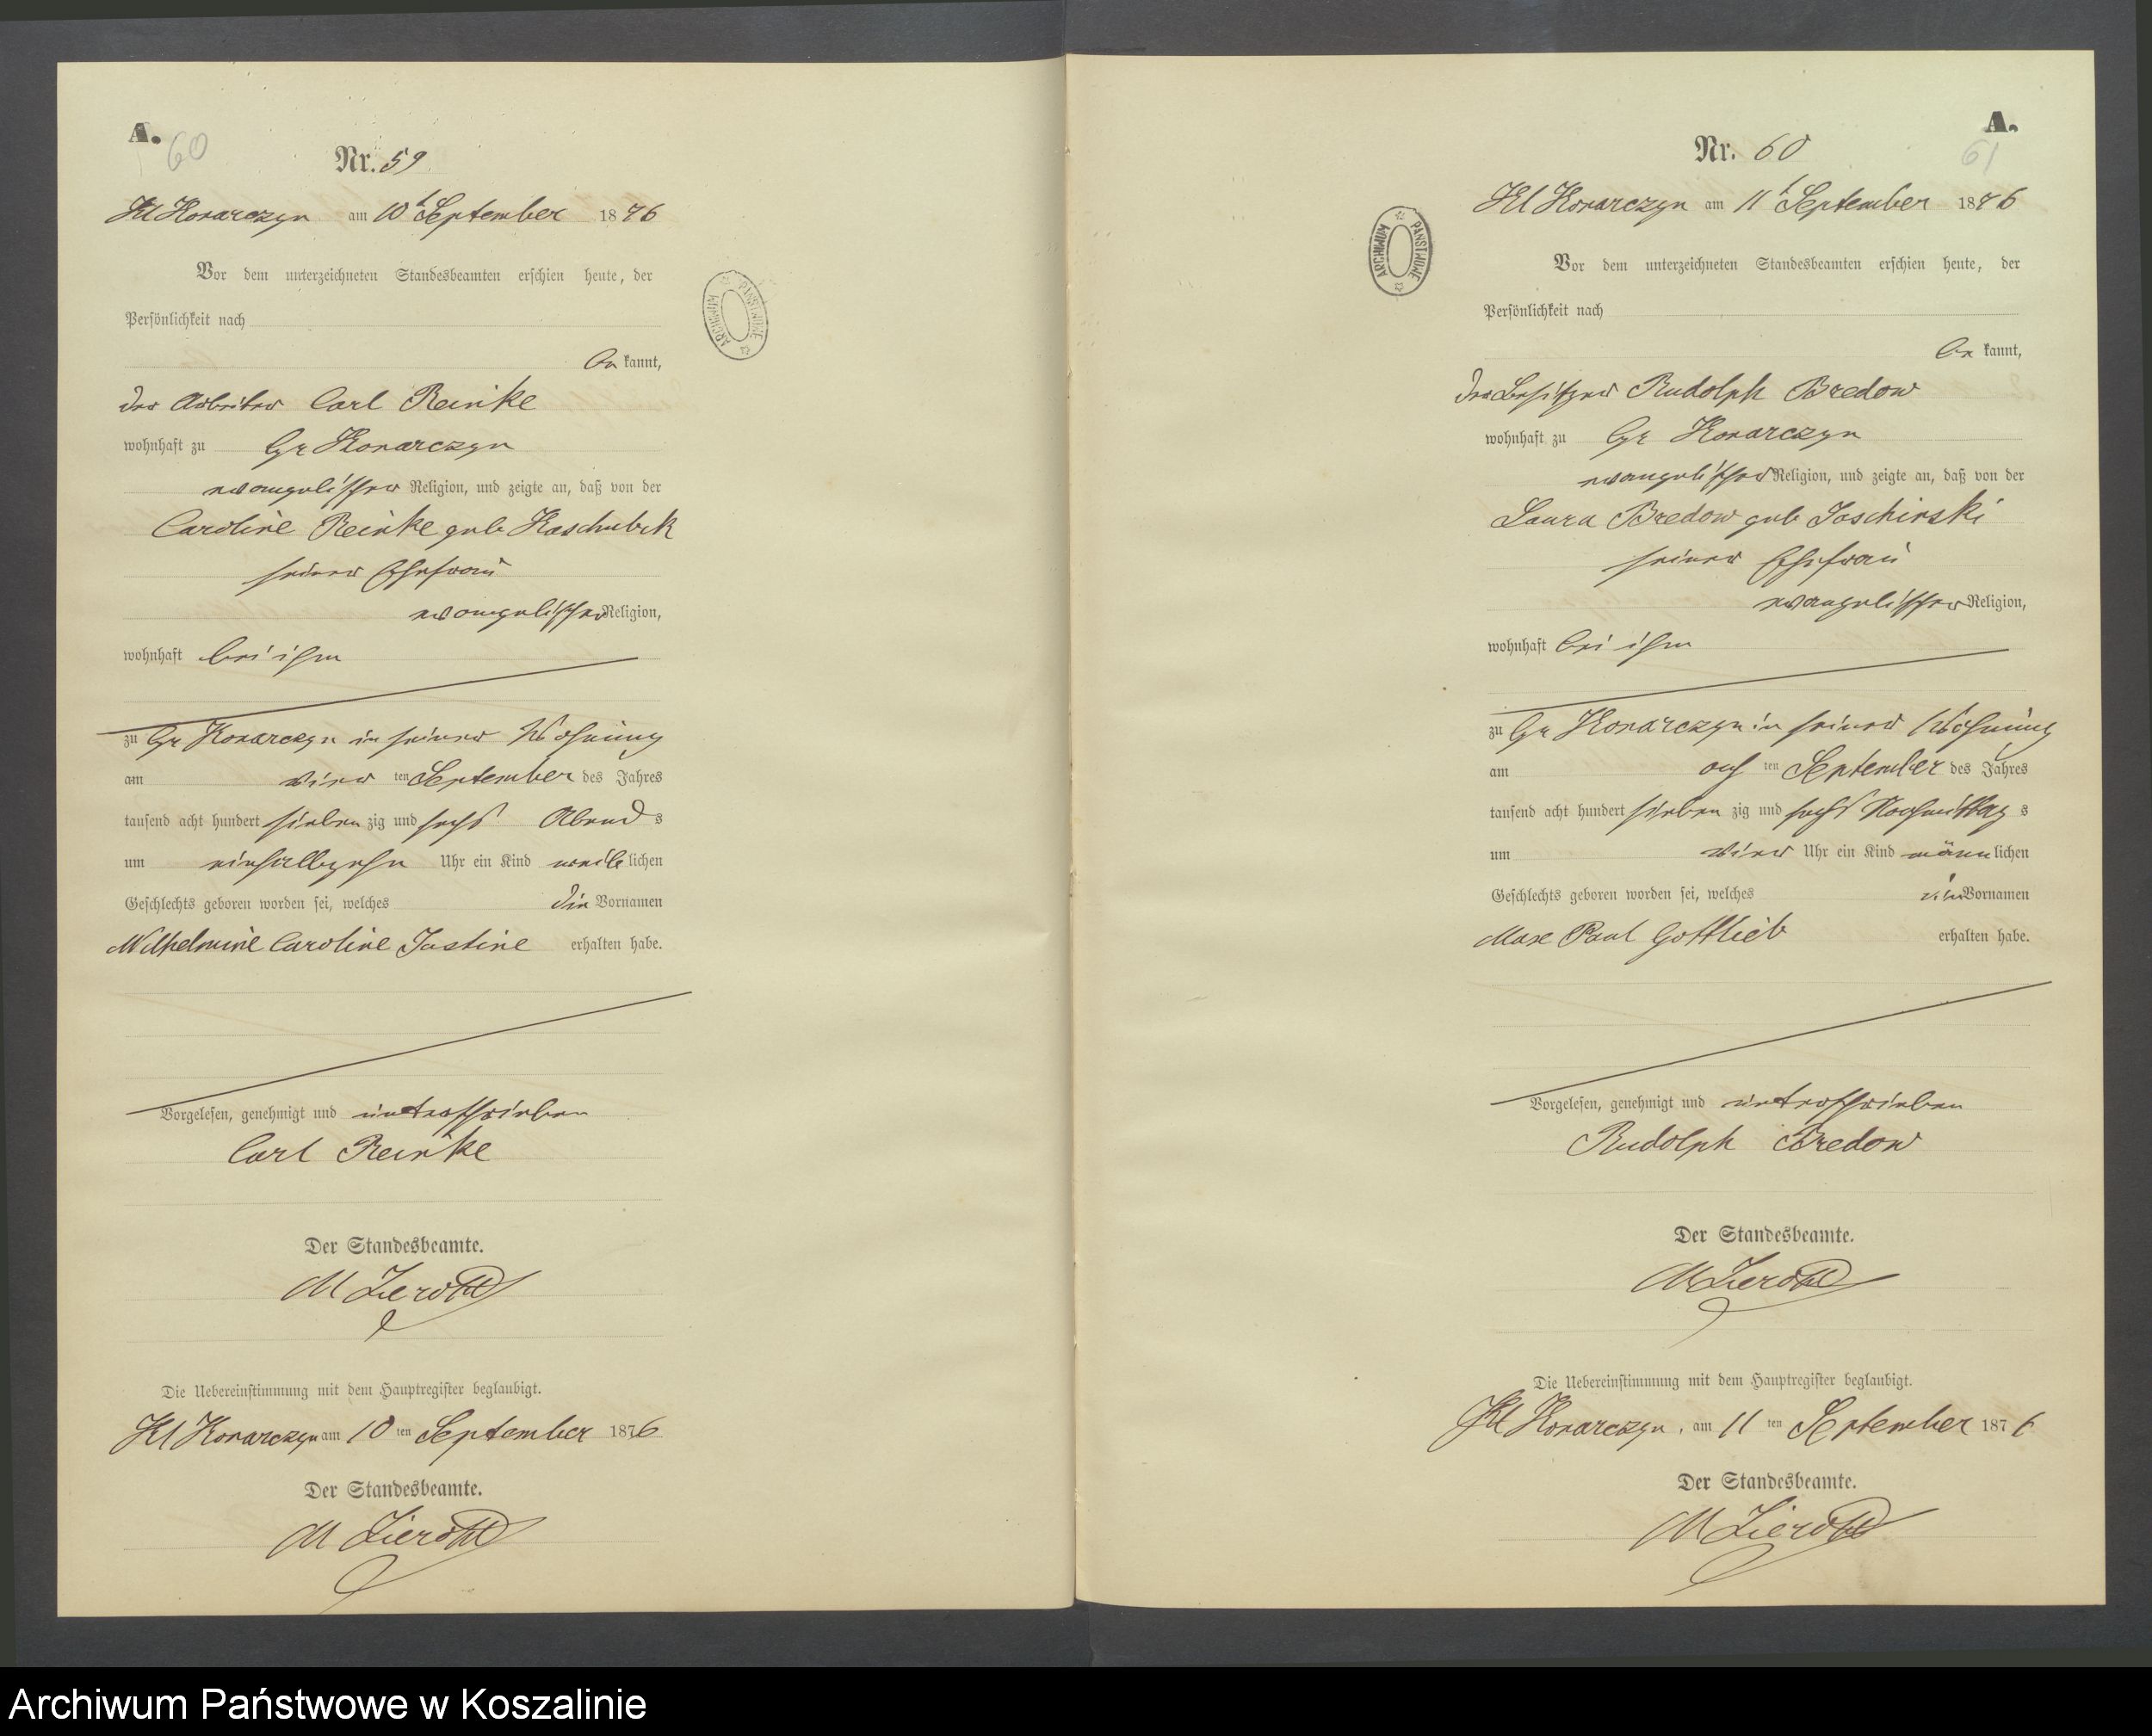 A.
60
Nr. 59
Kl Konarczyn am 10t September 1876
Vor dem unterzeichneten Standesbeamten erschien heute, der
Persönlichkeit nach
be kannt,
der Arbeiter Carl Reinke
wohnhaft zu Gr Konarczyn
evangelischer Religion, und zeigte an, daß von der
Caroline Reinke geb Kaschubek
seiner Ehefrau
evangelischer Religion,
wohnhaft bei ihm
zu Gr Konarczyn in seiner Wohnung
am vier ten September des Jahres
tausend acht hundert sieben zig und sechs Abend s
um einhalbzehn Uhr ein Kind weib lichen
Geschlechts geboren worden sei, welches die Vornamen
Wilhelmine Caroline Justine erhalten habe.
Vorgelesen, genehmigt und unterschrieben
Carl Reinke
Der Standesbeamte.
M Zieroth
Die Uebereinstimmung mit dem Hauptregister beglaubigt.
Kl Konarczyn am 10 ten September 1876
Der Standesbeamte.
M Zieroth
ARCHIWUM PAŃSTWOWE
A.
61
Nr. 60
Kl Konarczyn am 11t September 1876
Vor dem unterzeichneten Standesbeamten erschien heute, der
Persönlichkeit nach
be kannt,
der Besitzer Rudolph Bredow
wohnhaft zu Gr Konarczyn
evangelischer Religion, und zeigte an, daß von der
Laura Bredow geb Jaschinski
seiner Ehefrau
evangelischer Religion,
wohnhaft bei ihm
zu Gr Konarczyn in seiner Wohnung
am ach ten September des Jahres
tausend acht hundert sieben zig und sechs Nachmittag s
um vier Uhr ein Kind männ lichen
Geschlechts geboren worden sei, welches die Vornamen
Max Paul Gottlieb erhalten habe.
Vorgelesen, genehmigt und unterschrieben
Rudolph Bredow
Der Standesbeamte.
M Zieroth
Die Uebereinstimmung mit dem Hauptregister beglaubigt.
Kl Konarczyn, am 11 ten September 1876
Der Standesbeamte.
M Zieroth
ARCHIWUM PAŃSTWOWE
Archiwum Państwowe w Koszalinie